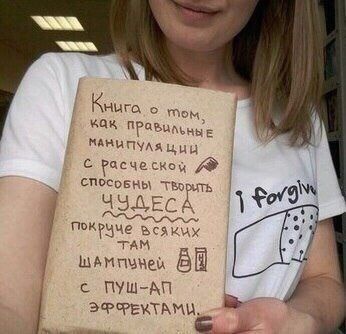 Книга о том,
как правильные
манипуляции
с расческой
способны творить
ЧУДЕСА
покруче всяких
там
шампуней
с ПУШ-АП
ЭФФЕКТАМИ
i forgiv